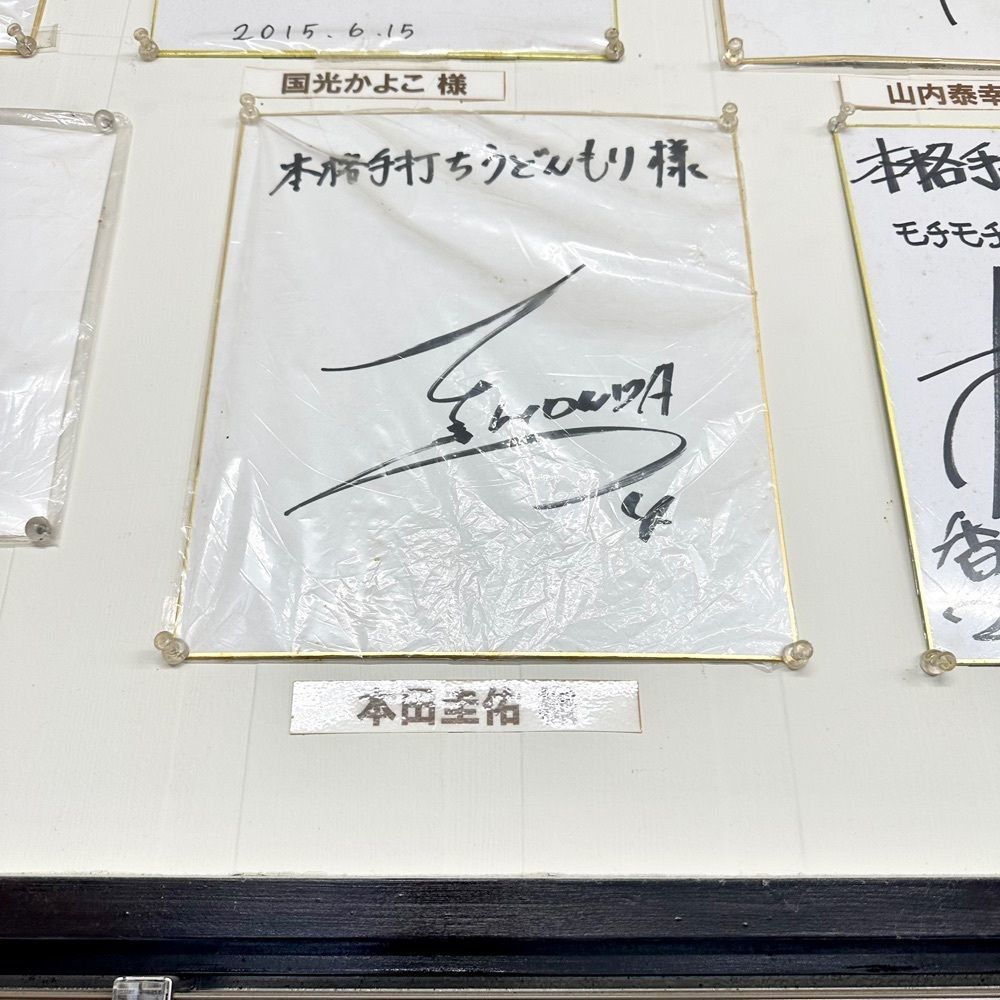 2015.6.15
国光かよこ 様
山内泰幸
本格手打ちうどんもり様
本格手
モチモチ
HONDA
4
香
本田圭佑 様